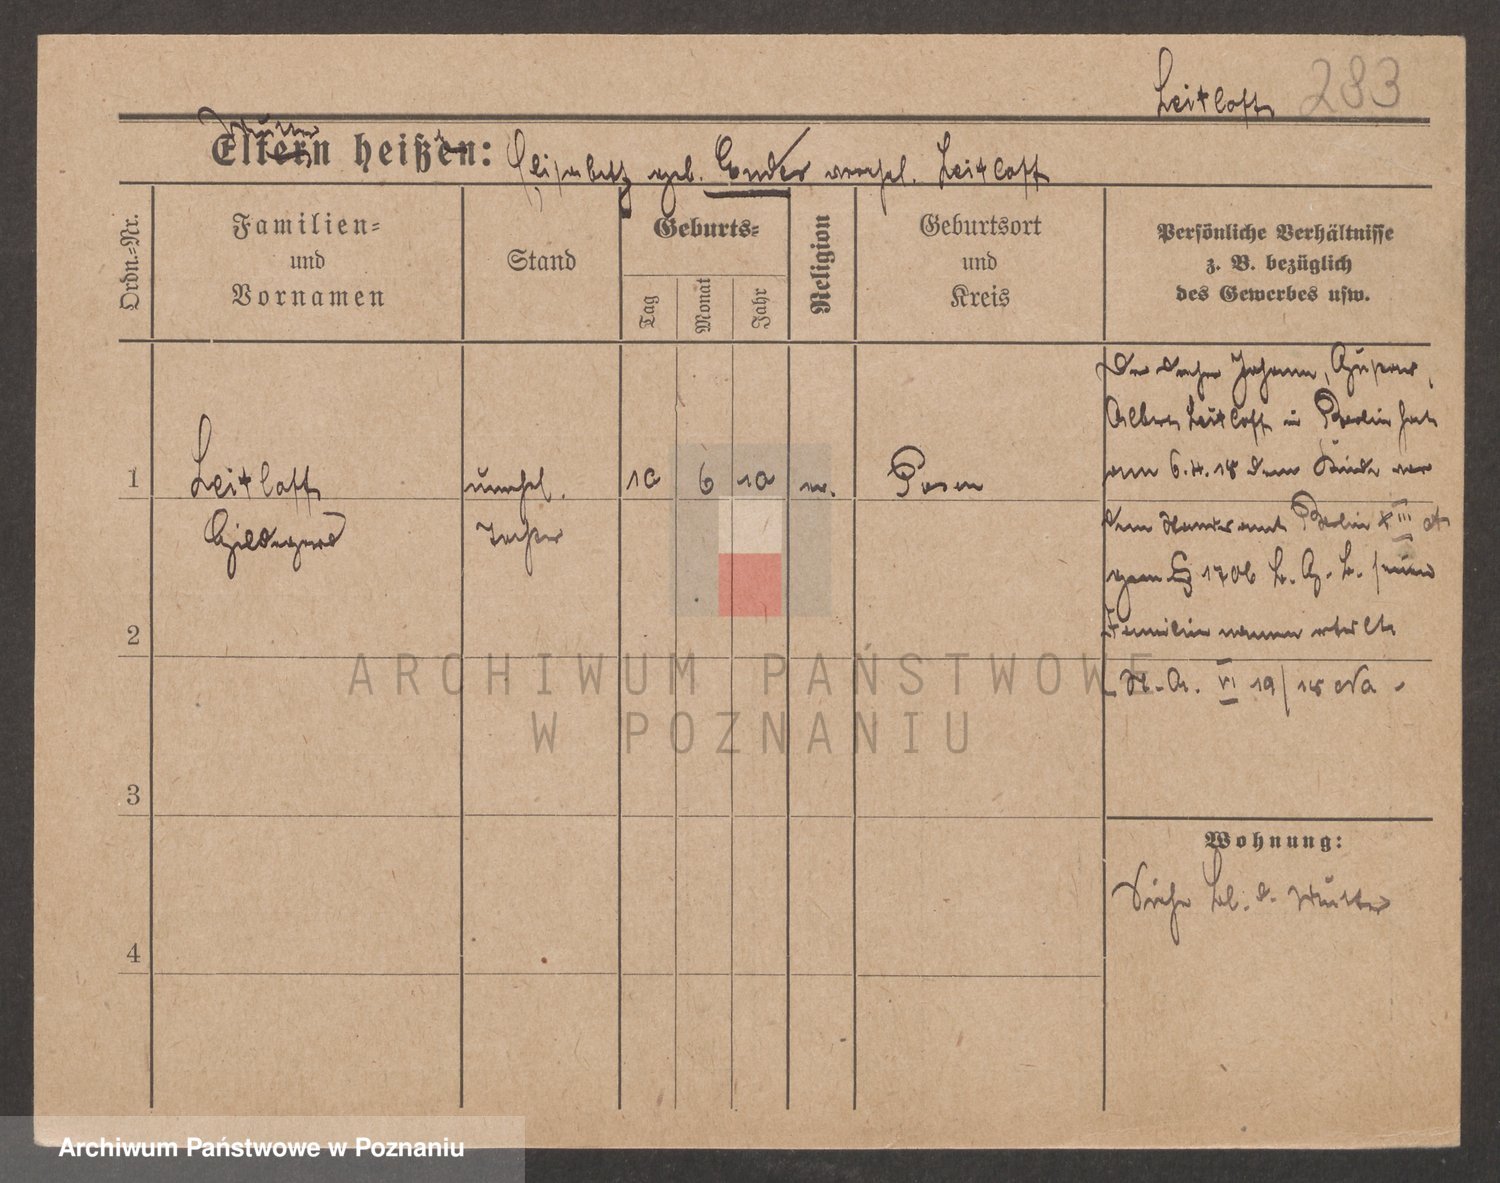 Leitloff 283
Mutter
Eltern heißen: Elisabeth geb. Ender verehel. Leitloff
Ordn.-Nr.
Familien-
und
Vornamen
Stand
Geburts-
Tag
Monat
Jahr
Religion
Geburtsort
und
Kreis
Persönliche Verhältnisse
z. B. bezüglich
des Gewerbes usw.
Der Johann, Gustav,
Albert Leitloff in Berlin hat
am 6.4.18 dem Kinde vor
1 Leitloff unehel. 10 6 10 Posen
dem Standesamt Berlin XIII
Hildegard Tochter
gem. § 1706 B.G.B. seinen
2 Familiennamen erteilt
St.A. VI 19/18
ARCHIWUM PAŃSTWOWE
W POZNANIU
3
Wohnung:
Siehe Bl. d. Mutter
4
Archiwum Państwowe w Poznaniu